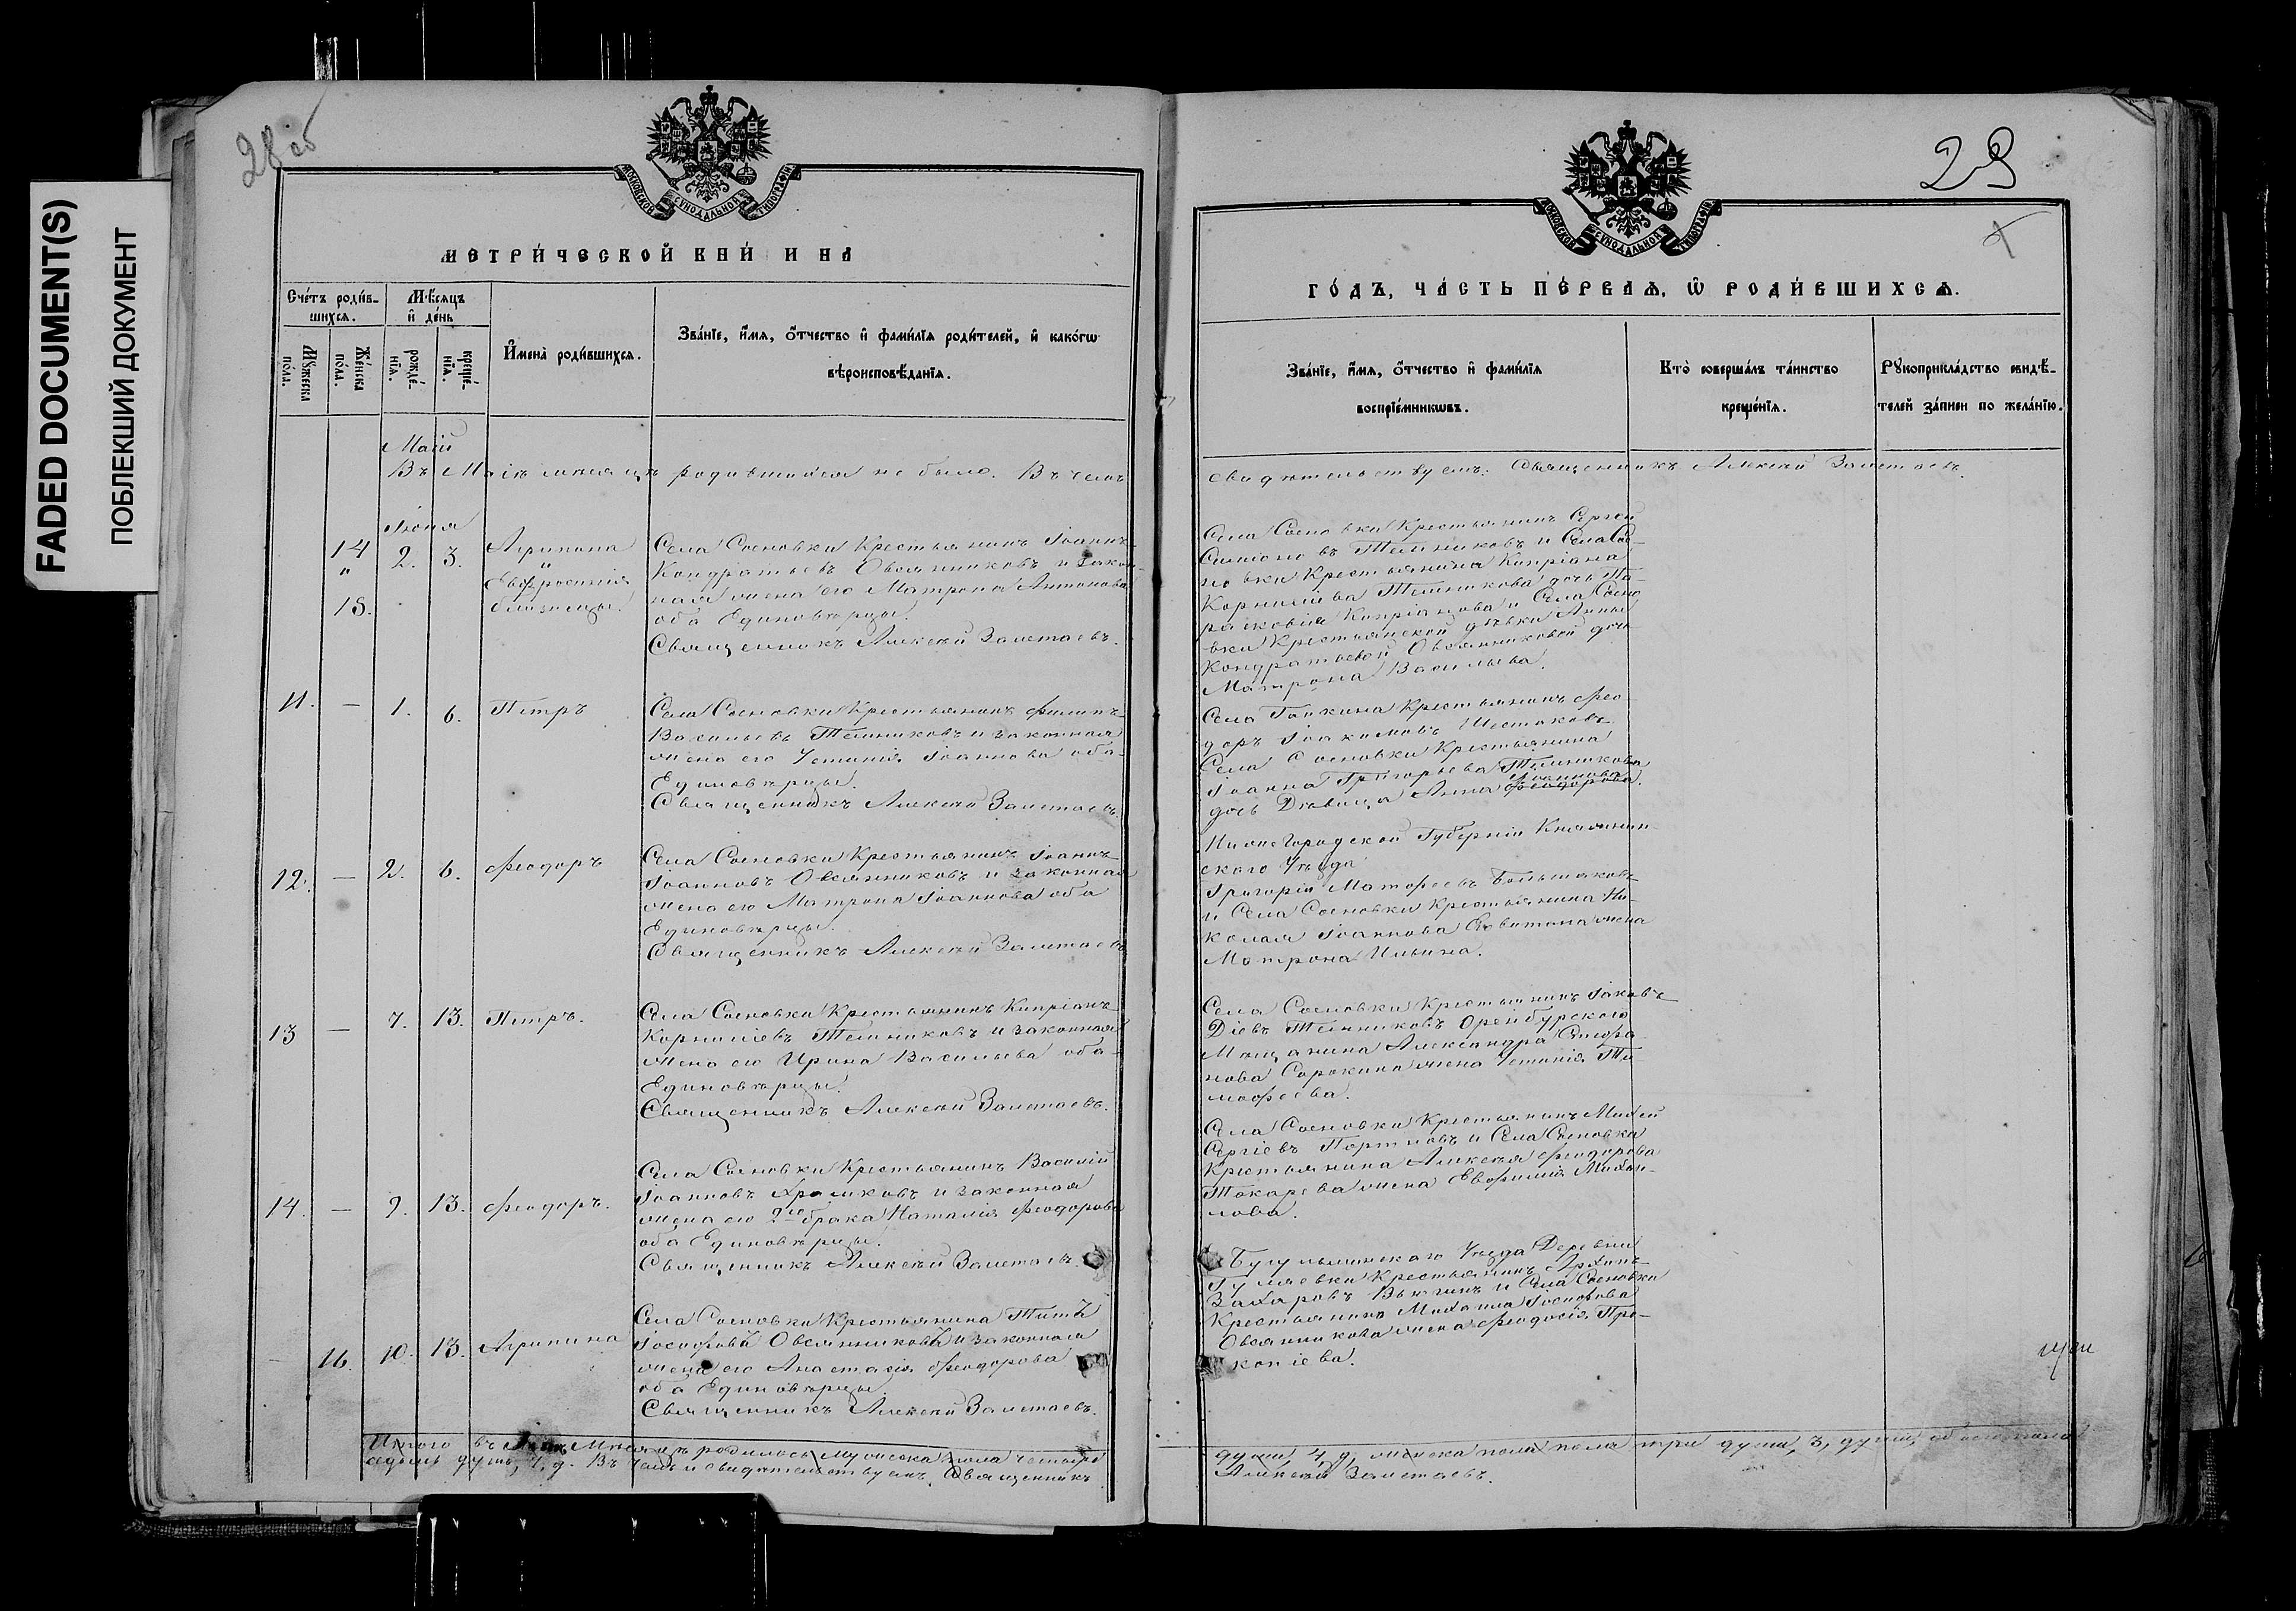 FADED DOCUMENT(S)
ПОБЛЕКШИЙ ДОКУМЕНТ
28 об
МОСКОВСКОЙ СѴНОДАЛЬНОЙ ТИПОГРАФІИ
МЕТРИ́ЧЕСКОЙ КНИ́ И НА
Сче́тъ роди́в-
шихсѧ.
Мѣ́сѧцъ
и҆ де́нь
Мꙋжеска по́ла.
Же́нска по́ла.
рожде́-
нїѧ.
креще́-
нїѧ.
И҆мена̀ роди́вшихсѧ.
Зва́нїе, и҆́мѧ, ѻ҆́тчество и҆ фами́лїѧ роди́телей, и҆ како́гѡ
вѣроисповѣ́данїѧ.
Маій
Въ Маіѣ мѣсяцѣ родившихся не было. Въ чемъ
Іюня
14 2. 3. Агрипина
" "
Евфросинія
15. близнецы.
Села Сосновки Крестьянинъ Іоаннъ
Кондратьевъ Овсянниковъ и закон-
ная жена его Матрона Антонова
оба Единовѣрцы.
Священникъ Алексѣй Заметаевъ.
11. — 1. 6. Петръ
Села Сосновки Крестьянинъ Филипъ
Васильевъ Темниковъ и законная
жена его Устинія Іоаннова оба
Единовѣрцы.
Священникъ Алексѣй Заметаевъ.
12. — 2. 6. Феодоръ
Села Сосновки Крестьянинъ Іоаннъ
Іоанновъ Овсянниковъ и законная
жена его Матрона Іоаннова оба
Единовѣрцы.
Священникъ Алексѣй Заметаевъ
13 — 7. 13. Петръ.
Села Сосновки Крестьянинъ Кипріанъ
Корниліевъ Темниковъ и законная
жена его Ирина Васильева оба
Единовѣрцы.
Священникъ Алексѣй Заметаевъ.
14. — 9. 13. Феодоръ.
Села Сосновки Крестьянинъ Василій
Іоанновъ Хромковъ и законная
жена его 2го брака Наталія Феодорова
оба Единовѣрцы.
Священникъ Алексѣй Заметаевъ.
16. 10. 13. Агрипина
Села Сосновки Крестьянина Титъ
Іосифовъ Овсянниковъ и законная
жена его Анастасія Феодорова
оба Единовѣрцы.
Священникъ Алексѣй Заметаевъ.
Итого въ Мѣсяцѣ родилось Мужеска пола четыре
седьмь душъ, 7, д. Въ чемъ и свидѣтельствуемъ. Священникъ
29
МОСКОВСКОЙ СѴНОДАЛЬНОЙ ТИПОГРАФІИ
ГО́ДЪ, ЧА́СТЬ ПЕ́РВАѦ, Ѡ҆ РОДИ́ВШИХСѦ.
Зва́нїе, и҆́мѧ, ѻ҆́тчество и҆ фами́лїѧ
воспрїе́мникѡвъ.
Кто̀ соверша́лъ та́инство
креще́нїѧ.
Рꙋкоприкла́дство свидѣ́-
телей за́писи по жела́нїю.
свидѣтельствуемъ: Священникъ Алексѣй Заметаевъ.
Села Сосновки Крестьянинъ Сергей
Симіоновъ Темниковъ и Села Сос-
новки Крестьянина Кипріана
Корниліева Темникова дочь Па-
расковія Кипріанова и Села Сосно
вки Крестьянской дѣвки Анны
Кондратьевой Овсянниковой дочь
Матрона Васильева.
Села Крестьянинъ Фео-
доръ Іоакимовъ Шестаковъ
Села Сосновки Крестьянина
Іоанна Григорьева Темникова
Іоаннова
дочь Дѣвица Анна Феодорова.
Нижегородской Губерніи Княгинин-
ского Уѣзда
Григорій Матфеевъ Большаковъ
и Села Сосновки Крестьянина Ни-
колая Іоаннова жена
Матрона Ильина.
Села Сосновки Крестьянинъ Іаковъ
Діевъ Темниковъ Оренбурского
Мещанина Александра Стефа-
нова Сорокина жена Устинія Ти
мофеева.
Села Сосновки Крестьянинъ Михей
Сергіевъ Портновъ и Села Сосновки
Крестьянина Алексѣя Феодорова
Токарева жена Евфимія Михаи-
лова.
Бугульминского Уѣзда Деревни
Гуляевки Крестьянинъ Архипъ
Захаровъ Вьюгинъ и Села Сосновки
Крестьянина Михаила Іосифова
Овсянникова жена Феодосія Про-
копіева.
души, 4, д, женска пола пола три души, 3, души, обоего пола
Алексѣй Заметаевъ.